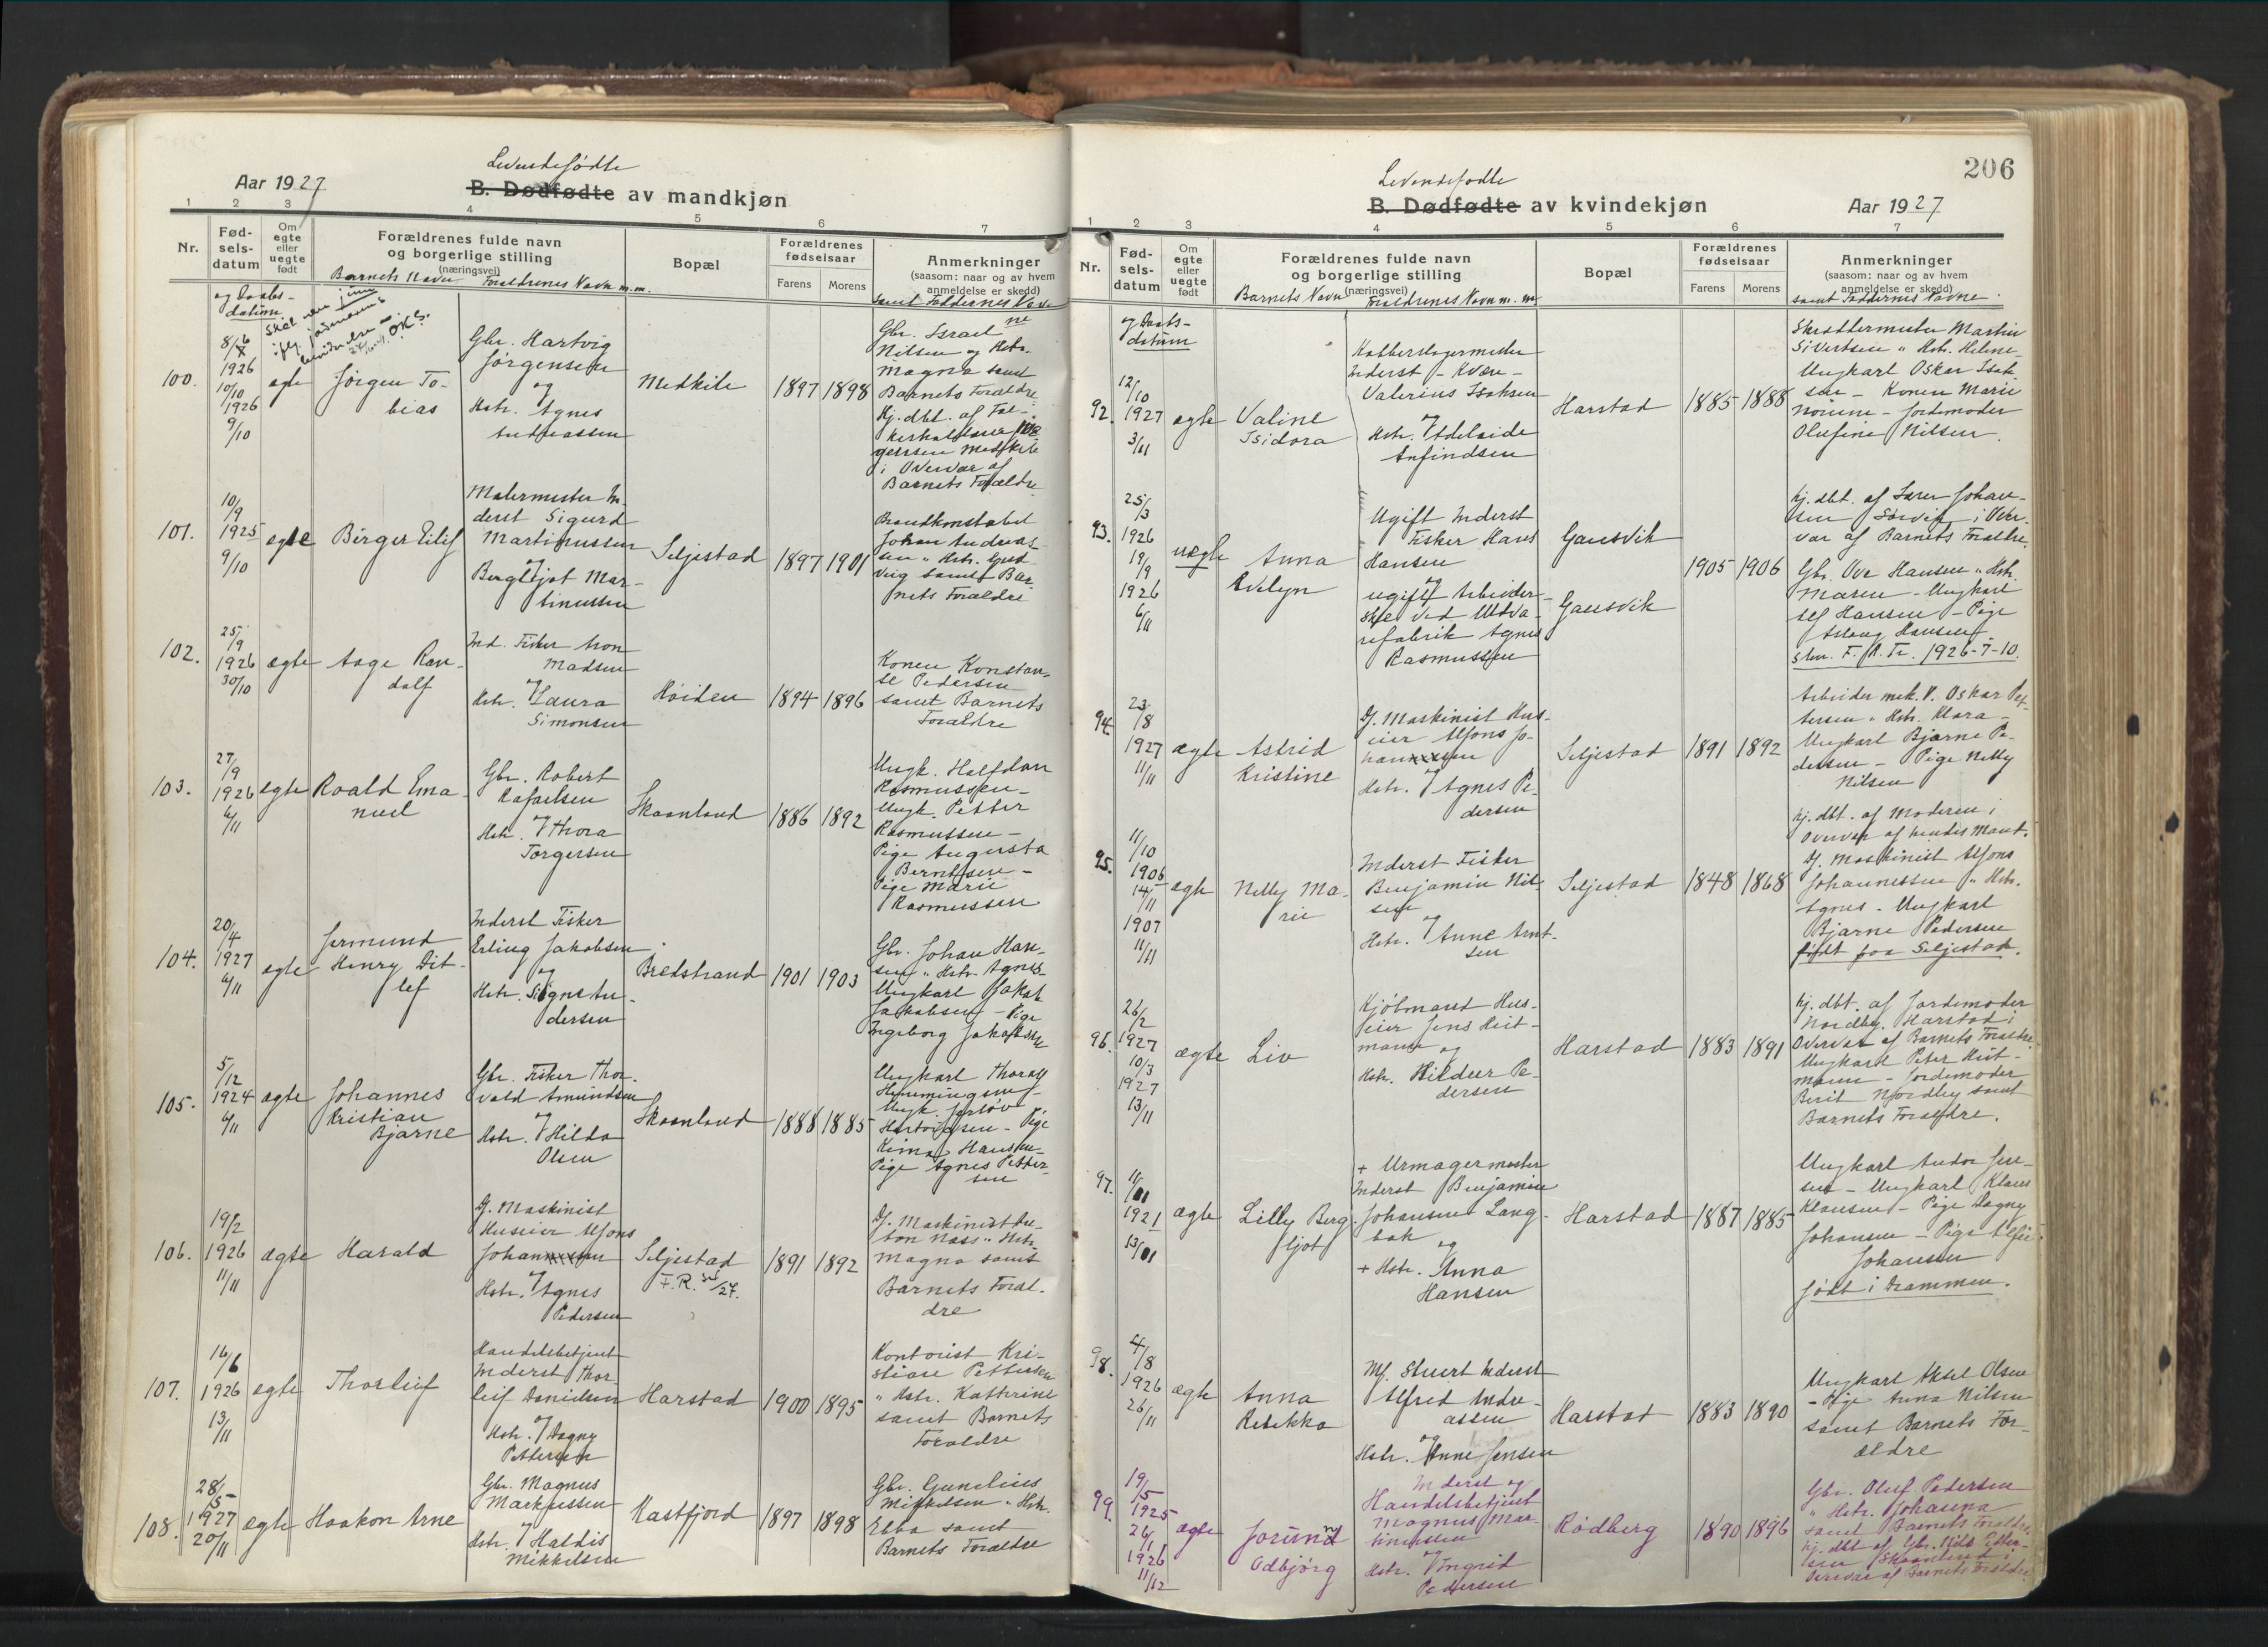 Levendefødte
Aar 1927
B. Dødfødte av mandkjøn
1 2 3 4 5 6 7
Nr.
Fød-
sels-
datum
Om
egte
eller
uegte
født
Forældrenes fulde navn
og borgerlige stilling
(næringsvei)
Barnets Navn Forældrenes Navn m.m.
Bopæl
Forældrenes
fødselsaar
Farens Morens
Anmerkninger
(saasom: naar og av hvem
anmeldelse er skedd)
samt Faddernes Navne
og Daabs-
datum
100.
8/6
1926
10/10
1926
9/10
egte
Jørgen To-
bias
Gbr. Hartvig
Jørgensen
og
Hstr. Agnes
Andreassen
Medkile
1897 1898
Gbr. Israel
Nilsen og Hstr.
Magna samt
Barnets Forældre
Hj. dbt. af
Medkile
i Overvær af
Barnets Forældre
101.
10/9
1925
9/10
egte
Birger Eilif
Malermester In-
derst Sigurd
Martinussen
og
Bergljot Mar-
tinussen
Seljestad
1897 1901
Brandkonstabel
Johan Andreas-
sen " Hstr. Gud-
veig samt Bar-
nets Forældre
102.
25/9
1926
30/10
egte
Aage Ran-
dolf
Ind. Fisker Aron
Madsen
og
Hstr. Laura
Simonsen
Høiden
1894 1896
Konen Konstan-
se Pedersen
samt Barnets
Forældre
103.
27/9
1926
6/11
egte
Roald Ema-
nuel
Gbr. Robert
Rafaelsen
og
Hstr. Thora
Torgersen
Skaanland
1886 1892
Ungk. Halfdan
Rasmussen -
Ungk. Petter
Rasmussen -
Pige Augusta
Berntsen -
Pige Marie
Rasmussen
104.
20/4
1927
6/11
egte
Jermund
Henry Dit-
lef
Inderst Fisker
Erling Jakobsen
og
Hstr. Signe An-
dersen
Bredstrand
1901 1903
Gbr. Johan Han-
sen " Hstr. Agnes -
Ungkarl Jakob
Jakobsen - Pige
Ingeborg Jakobsen
105.
5/12
1924
6/11
egte
Johannes
Kristian
Bjarne
Gbr. Fisker Thor-
vald Amundsen
og
Hstr. Hilda
Olsen
Skaanland
1888 1885
Ungkarl Thoralf
Hemmingsen -
Ungk.
Hartvigsen - Pige
Hansen -
Pige Agnes Petter-
sen
106.
19/2
1926
11/11
egte
Harald
Dj. Maskinist
Huseier Alfons
Johannessen
og
Hstr. Agnes
Pedersen
Seljestad
1891 1892
Dj. Maskinist An-
ton Nass " Hstr.
Magna samt
Barnets Foræl-
dre
107.
16/6
1926
13/11
egte
Thorleif
Handelsbetjent
Inderst Thor-
leif Danielsen
og
Hstr. Dagny
Pettersen
Harstad
1900 1895
Kontorist Kri-
stian Pettersen
" Hstr. Kathrine
samt Barnets
Forældre
108.
28/5
1927
20/11
egte
Haakon Arne
Gbr. Magnus
Markussen
og
Hstr. Haldis
Mikkelsen
Kastfjord
1897 1898
Gbr. Gunelius
Mikkelsen " Hstr.
Ebba samt
Barnets Forældre
206
Levendefødte
B. Dødfødte av kvindekjøn
Aar 1927
1 2 3 4 5 6 7
Nr.
Fød-
sels-
datum
Om
egte
eller
uegte
født
Forældrenes fulde navn
og borgerlige stilling
(næringsvei)
Barnets Navn Forældrenes Navn m. m.
Bopæl
Forældrenes
fødselsaar
Farens Morens
Anmerkninger
(saasom: naar og av hvem
anmeldelse er skedd)
samt Faddernes Navne
og Daabs-
datum
92.
12/10
1927
3/11
egte
Valine
Isidora
Kobberslagermester
Inderst - Kvæn -
Valerius Isaksen
og
Hstr. Adelaide
Anfindsen
Harstad
1885 1888
Skræddermester Martin
Sivertsen " Hstr. Helene -
Ungkarl Oskar Isak-
sen - Konen Marie
Noreen - Jordemoder
Olufine Nilsen.
93.
25/3
1926
19/9
1926
6/11
uegte
Anna
Evelyn
Ugift Inderst
Fisker Hans
Hansen
og
ugift Arbeider-
ske ved Uldva-
refabrik Agnes
Rasmussen
Gausvik
Gausvik
1905 1906
Hj. dbt. af Lærer Johan-
sen Sørvik i Over-
vær af Barnets Forældre
Gbr. Ove Hansen " Hstr.
Maren - Ungkarl
Alf Hansen - Pige
Aslaug Hansen
1926-7-10.
94.
23/8
1927
11/11
egte
Astrid
Kristine
Dj. Maskinist Hus-
eier Alfons Jo-
hannessen
og
Hstr. Agnes Pe-
dersen
Seljestad
1891 1892
Arbeider mek. V. Oskar Pet-
tersen " Hstr. Klara -
Ungkarl Bjarne Pe-
dersen - Pige Nelly
Nilsen
95.
11/10
1906
14/11
1907
11/11
egte
Nelly Ma-
rie
Inderst Fisker
Benjamin Nil-
sen
og
Hstr. Anne Arnt-
sen
Seljestad
1848 1868
Hj. dbt. af Moderen i
Overvær af hendes Mand.
Dj. Maskinist Alfons
Johannessen " Hstr.
Agnes - Ungkarl
Bjarne Pedersen
født paa Seljestad.
96.
26/2
1927
10/3
1927
13/11
egte
Liv
Kjøbmand Hus-
eier Jens Heit-
mann og
Hstr. Hildur Pe-
dersen
Harstad
1883 1891
Hj. dbt. af Jordemoder
Nordby, Harstad i
Overvær af Barnets Forældre
Ungkarl Peter Heit-
mann - Jordemoder
Berit Nordby samt
Barnets Forældre.
97.
1921
egte
Lilly Berg-
ljot
+ Urmagermester
Inderst Benjamin
Johansen Lang-
bak
og
+ Hstr. Anna
Hansen
Harstad
1887 1885
Ungkarl Andor Jen-
sen - Ungkarl Klaus
Klausen - Pige Dagny
Johansen - Pige
Johansen
født i Drammen.
98.
4/8
1926
26/11
egte
Anna
Rebekka
Mf. Stuert Inderst
Alfred Andre-
assen
og
Hstr. Anne Jensen
Harstad
1883 1890
Ungkarl Aksel Olsen
- Pige Anna Nilsen
samt Barnets For-
ældre
99.
19/5
1925
26/1
1926
11/12
egte
Jorunn
Odbjørg
Inderst og
Handelsbetjent
Magnus Mar-
tinussen
og
Hstr. Ingrid
Pedersen
Rødberg
1890 1896
Gbr. Oluf Pedersen
" Hstr. Johanna
samt Barnets Forældre.
Hj. dbt. af Gbr. Nils Peder-
sen Skaanland i
Overvær af Barnets Forældre.